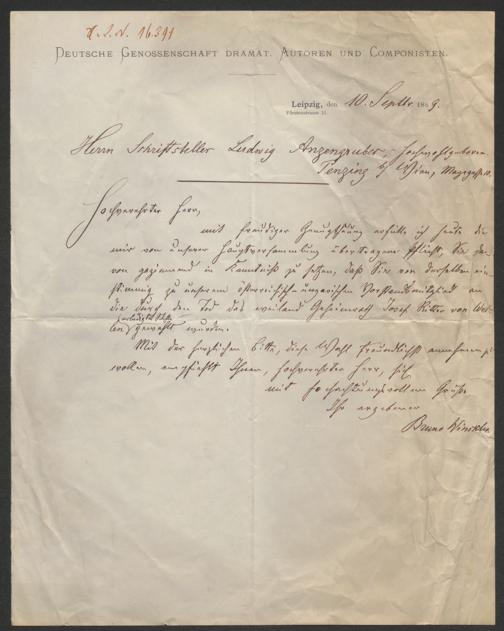 H.I.N. 16.391
DEUTSCHE GENOSSENSCHAFT DRAMAT. AUTOREN UND COMPONISTEN.
Leipzig, den 10. Septbr. 1889.
Herrn Schriftsteller Ludwig Anzengruber, Hochwohlgeboren
Penzing b/ Wien,
Hochverehrter Herr,
mit freudiger Genugthuung erfülle ich heute die
mir von unserer Hauptversammlung übertragene Pflicht, Sie da-
von geziemend in Kenntniß zu setzen, daß Sie von derselben ein-
stimmig zu unserem österreichisch-ungarischen Vorstandsmitglied an
die durch den Tod des weiland Geheimrath Josef Ritter von Weil-
erledigte Stelle
len gewählt wurden.
Mit der herzlichen Bitte, diese Wahl freundlichst annehmen zu
wollen, empfiehlt Ihnen, hochverehrter Herr, sich
mit hochachtungsvollem Gruße
Ihr ergebener
Bruno